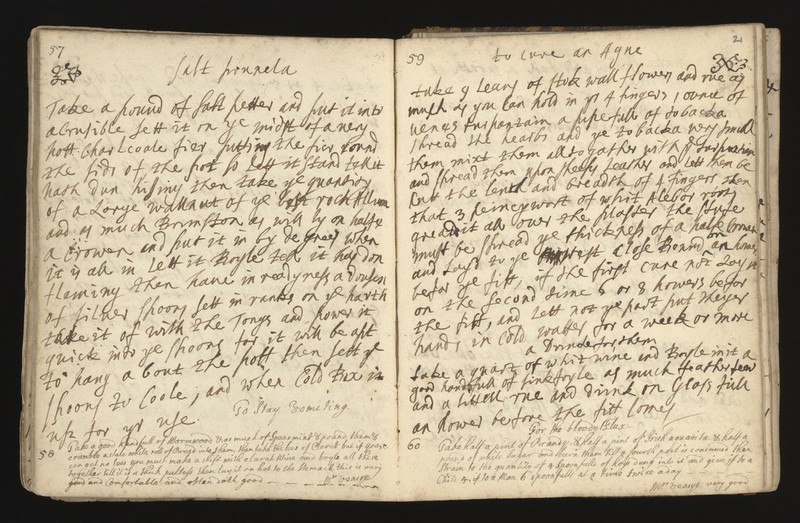 57
Salt prunela
Take a pound of salt petter and put it into
a Crusible sett it on ye midst of a very
hott Charlcoale fier putting the fier round
the sids of the pot so lett it stand till it
hath dun hising then take ye quantity
of a Large wallnut of ye best roch Allum
and as much Brimston as will ly on halfe
a Crowen and put it in by degrees when
it is all in Lett it Boyle till it hay don
flaming then have in readyness a dousen
of silver spoons sett in ranks on ye harth
take it of with the Tongs and power it
quick into ye spoons for it will be apt
to hang a bout the pott then sett ye
spoons to Coole, and when Cold Box in
for yr use
To Stay Vometing
58 Take a good handfull of Wormwood & as much of Spearmint & pound them &
crumble a stale white roll of Bread into them, then take the Lees of Claret but if you
can get no lees you must make a shift with clarat Wine and boyle all these
together till it is a thick pultess then lay it on hot to the Stomack this is very
good and comfortable and often doth good
59
21
to cure an Ague
take 9 leavs of stock wall flowers and rue as
much as you can hold in yr 4 fingers 1 ounce of
venes turpantain a pipe full of tobacka
shread the hearbs and ye tobacka very small
them mixt them alltogather with ye turpantain
and spread them upon sheeps Leather and lett them be
Cut the lenth and breadth of 4 fingers then
that 3 penneyworth of whit Alebor root
greadit all over the plaster the stufe
must be spread ye thickness of a halfe Crown
and Layd to ye Close Bound on an hower
befor ye fitt, if the first cure not Lay
on the second time 6 or 8 howers befor
the fitt, and lett not ye party put theyer
hands in Cold watter for a week or more
a Drinke for them
take a quart of whit wine and Boyle in it a
good handfull of sinkfoyle as much feather few
and a littell rue and drink on Glass full
an hower before the fitt Comes
For the bloody flux
60 Take half a pint of Brandy & half a pint of & half a
pound of white Sugar and burn them till a fourth part is consumed then
Strain to the quantity of 4 spoonfulls of in it and give it to a
Child &c, if to a Man 6 spoonfulls at a time twice a day
very good